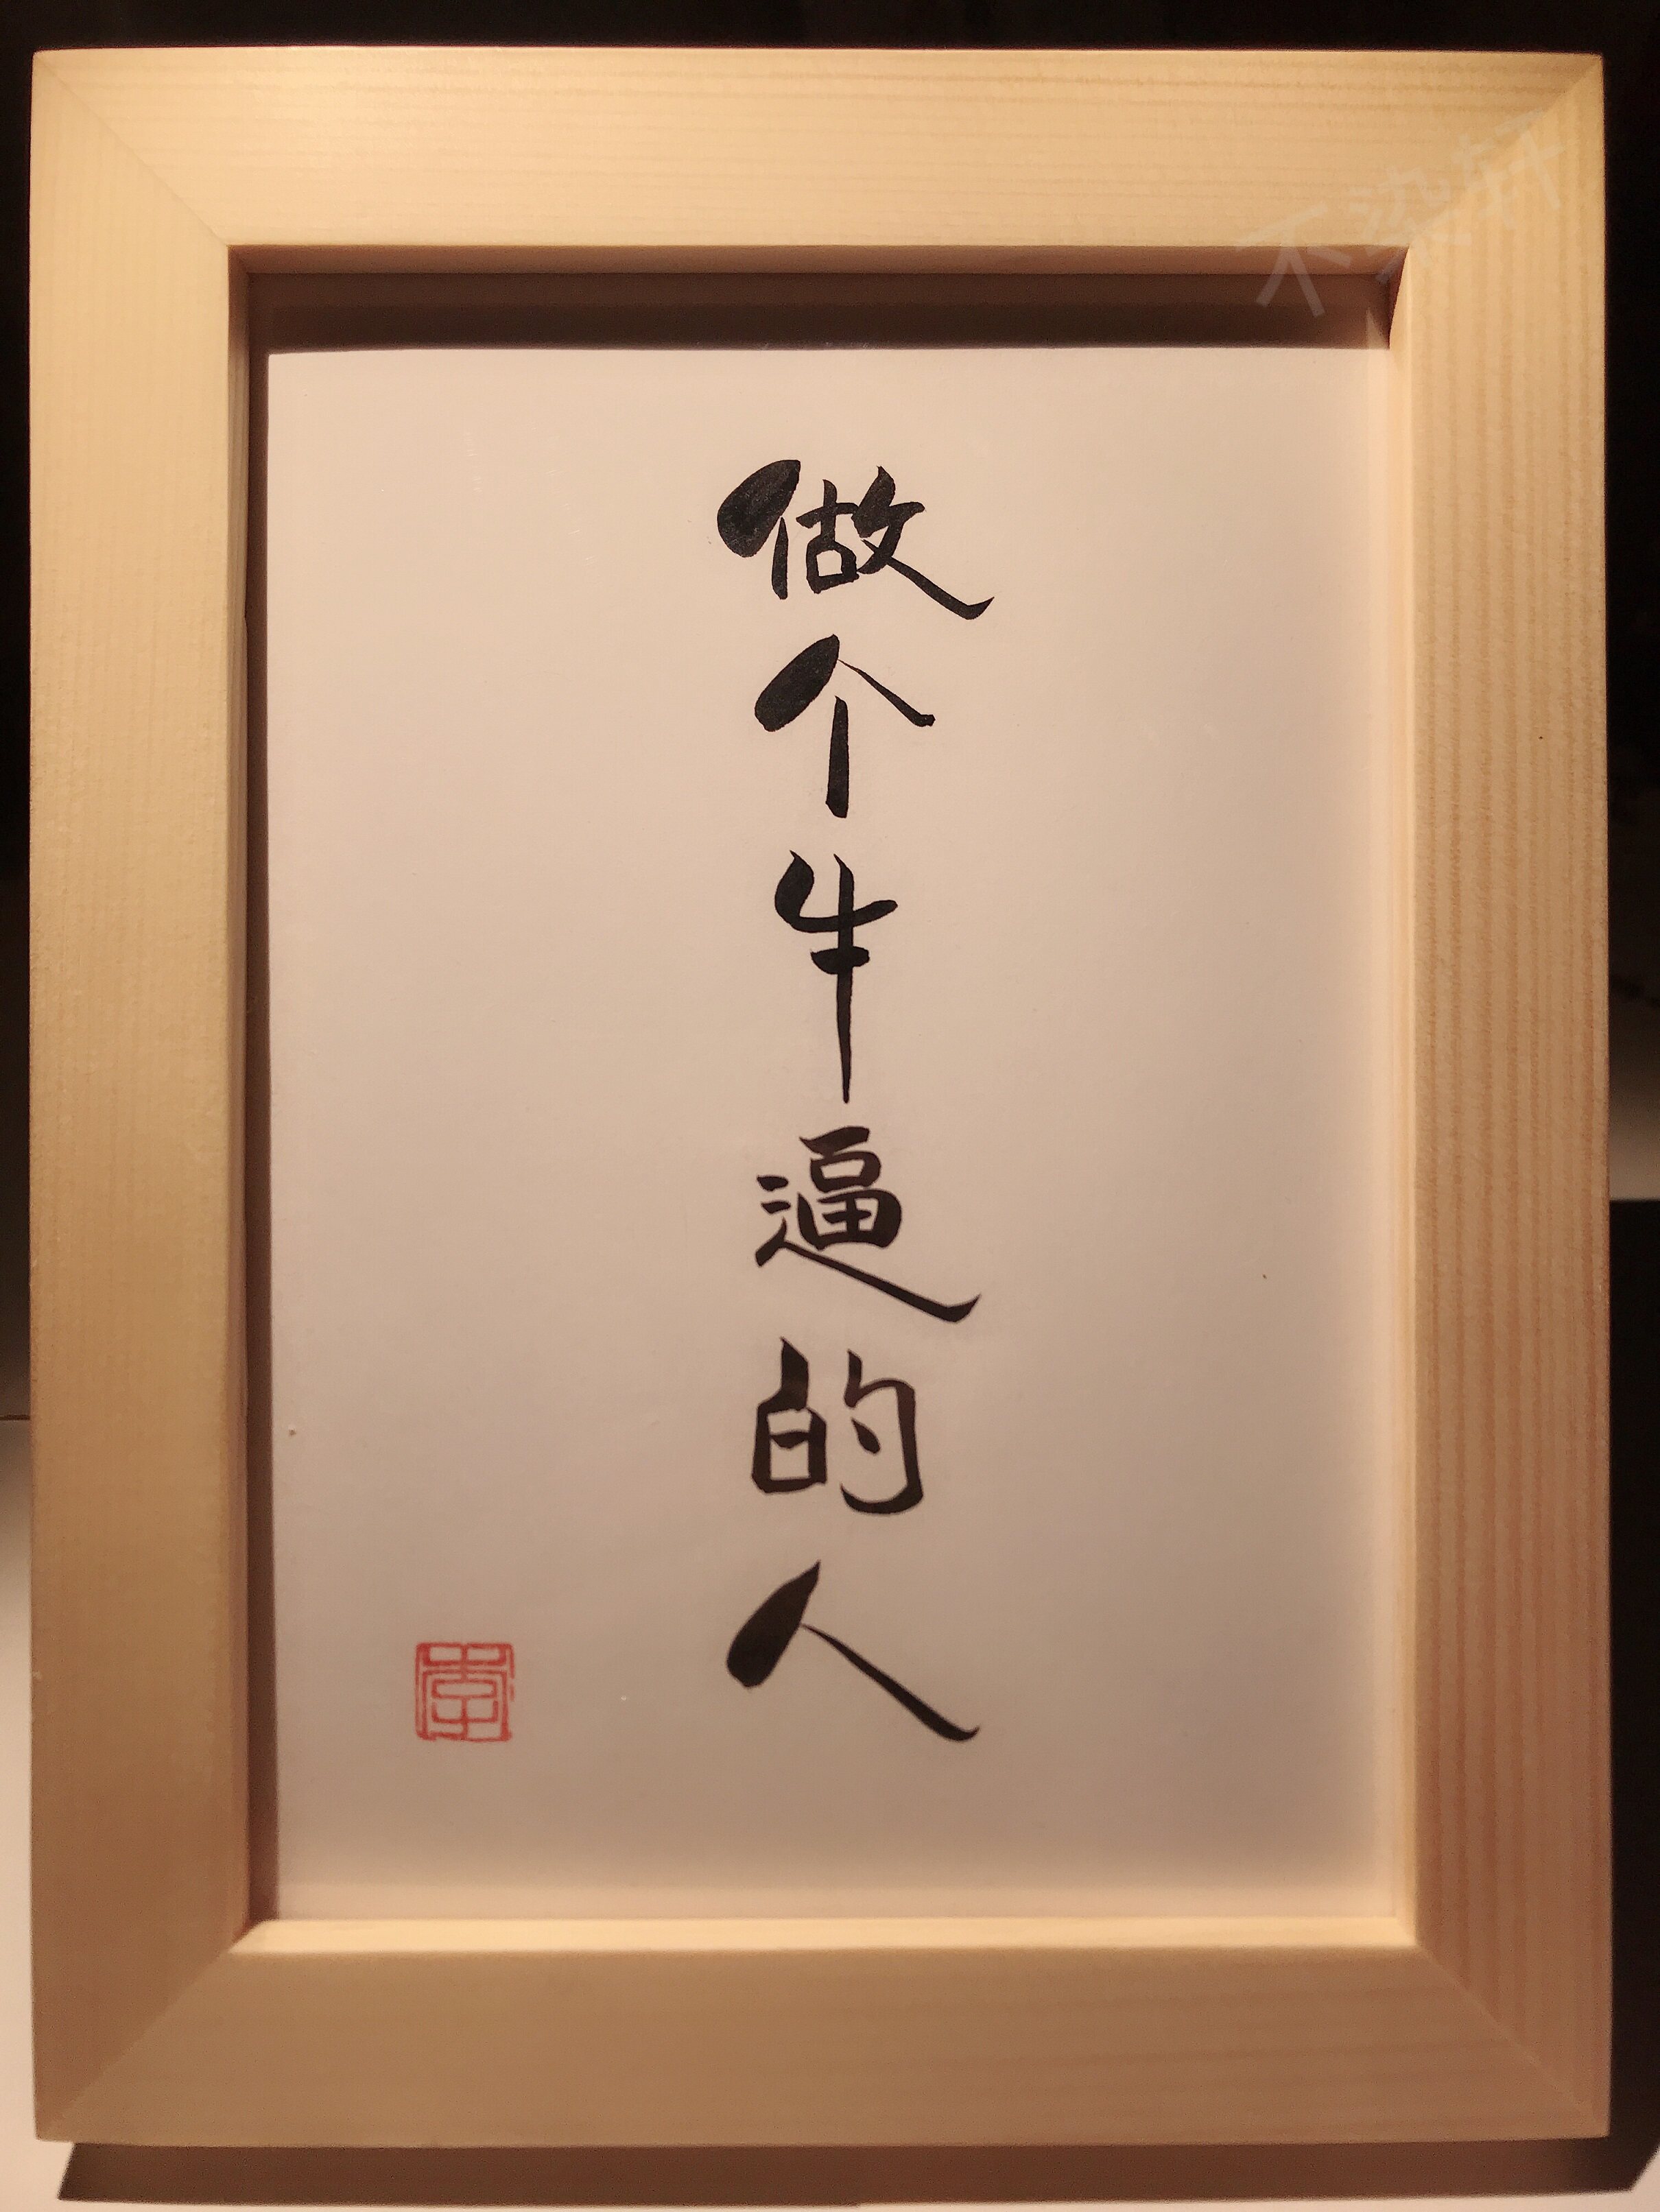 不染轩
做个牛逼的人